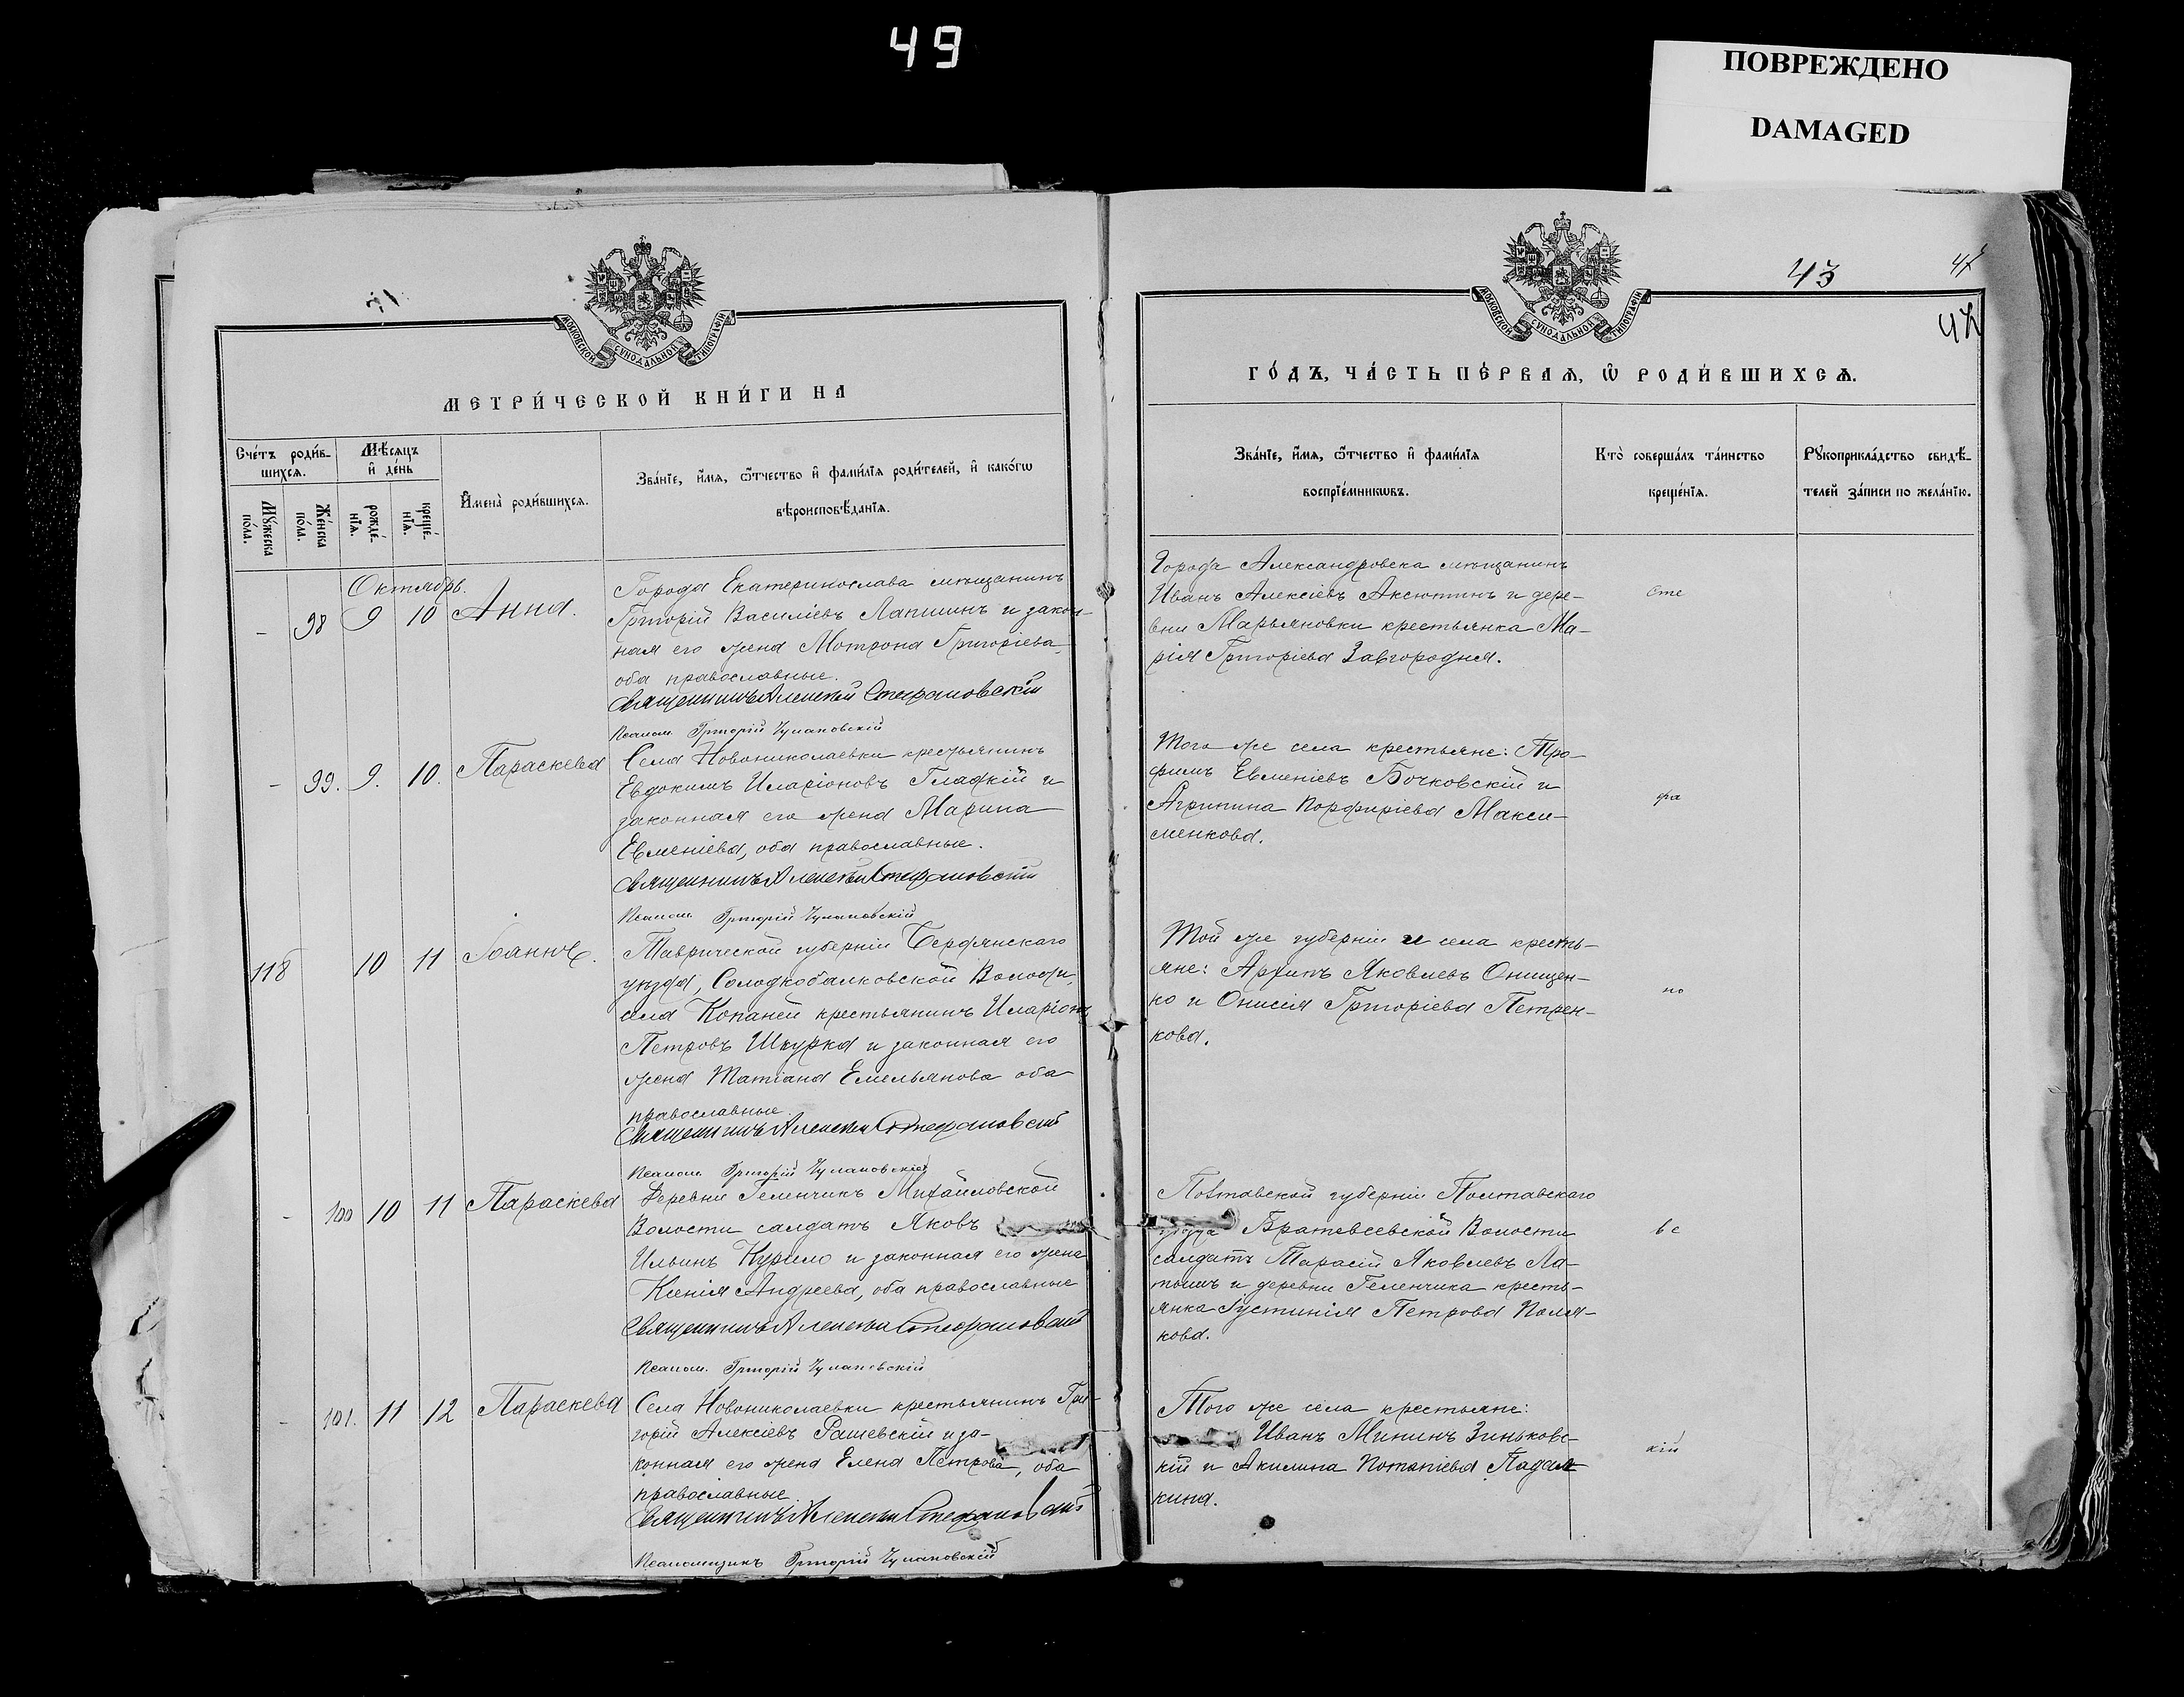 49
ПОВРЕЖДЕНО
DAMAGED
МОСКОВСКОЙ СѴНОДАЛЬНОЙ ТИПОГРАФІИ
МЕТРИ́ЧЕСКОЙ КНИ́ГИ НА
Сче́тъ роди́в-
шихсѧ.
Мѣ́сѧцъ
и҆ де́нь
Мꙋ́жеска
по́ла.
Же́нска
по́ла.
рожде́-
нїѧ.
креще́-
нїѧ.
И҆мена̀ роди́вшихсѧ.
Зва́нїе, и҆́мѧ, ѻ҆́тчество и҆ фами́лїѧ роди́телей, и҆ како́гѡ
вѣроисповѣ́данїѧ.
Октябрь.
- 98 9 10 Анна.
Города Екатеринослава мѣщанинъ
Григорій Василіевъ Лапшинъ и закон-
ная его жена Мотрона Григоріева,
оба православные.
Священникъ Алексѣй Стефановскій
Псалом. Григорій Чулановскій
- 99. 9. 10. Параскева
Села Новониколаевки крестьянинъ
Евдокимъ Иларіоновъ Гладкій и
законная его жена Марина
Евменіева, оба православные.
Священникъ Алексѣй Стефановскій
Псалом. Григорій Чулановскій
118 10 11 Іоаннъ.
Таврической губерніи Бердянскаго
уѣзда, Солодкобалковской Волости,
села Копаней крестьянинъ Иларіонъ
Петровъ Шкурка и законная его
жена Татіана Емельянова оба
православные.
Священникъ Алексѣй Стефановскій
Псалом. Григорій Чулановскій
- 100 10 11 Параскева
Деревни Геленчикъ Михайловской
Волости салдатъ Яковъ
Ильинъ Курило и законная его жена
Ксенія Андреева, оба православные
Священникъ Алексѣй Стефановскій
Псалом. Григорій Чулановскій
- 101. 11 12 Параскева
Села Новониколаевки крестьянинъ Гри-
горій Алексіевъ Рашевскій и за-
конная его жена Елена Петрова, оба
православные.
Священникъ Алексѣй Стефановскій
Псаломщикъ Григорій Чулановскій
43
МОСКОВСКОЙ СѴНОДАЛЬНОЙ ТИПОГРАФІИ
ГО́ДЪ, ЧА́СТЬ ПЕ́РВАѦ, Ѡ҆ РОДИ́ВШИХСѦ.
Зва́нїе, и҆́мѧ, ѻ҆́тчество и҆ фами́лїѧ
воспрїе́мникѡвъ.
Кто̀ соверша́лъ та́инство
креще́нїѧ.
Рꙋкоприкла́дство свидѣ́-
телей за́писи по жела́нїю.
Города Александровска мѣщанинъ
Иванъ Алексіевъ Аксютинъ и дере-
вни Марьяновки крестьянка Ма-
рія Григоріева Завгородняя.
Сте
Того же села крестьяне: Тро-
фимъ Евменіевъ Бочковскій и
Агрипина Порфиріева Макси-
менкова.
фа
Той же губерніи и села кресть-
яне: Архипъ Яковлевъ Онищен-
ко и Онисія Григоріева Петрен-
кова.
но
Полтавской губерніи Полтавскаго
уѣзда Братевсевской Волости
салдатъ Тарасій Яковлевъ Ла-
тышъ и деревни Геленчика кресть-
янка Іустинія Петрова Поля-
кова.
вс
Того же села крестьяне:
Иванъ Мининъ Зиньковс-
кій и Акилина Потапіева Падал-
кина.
кій